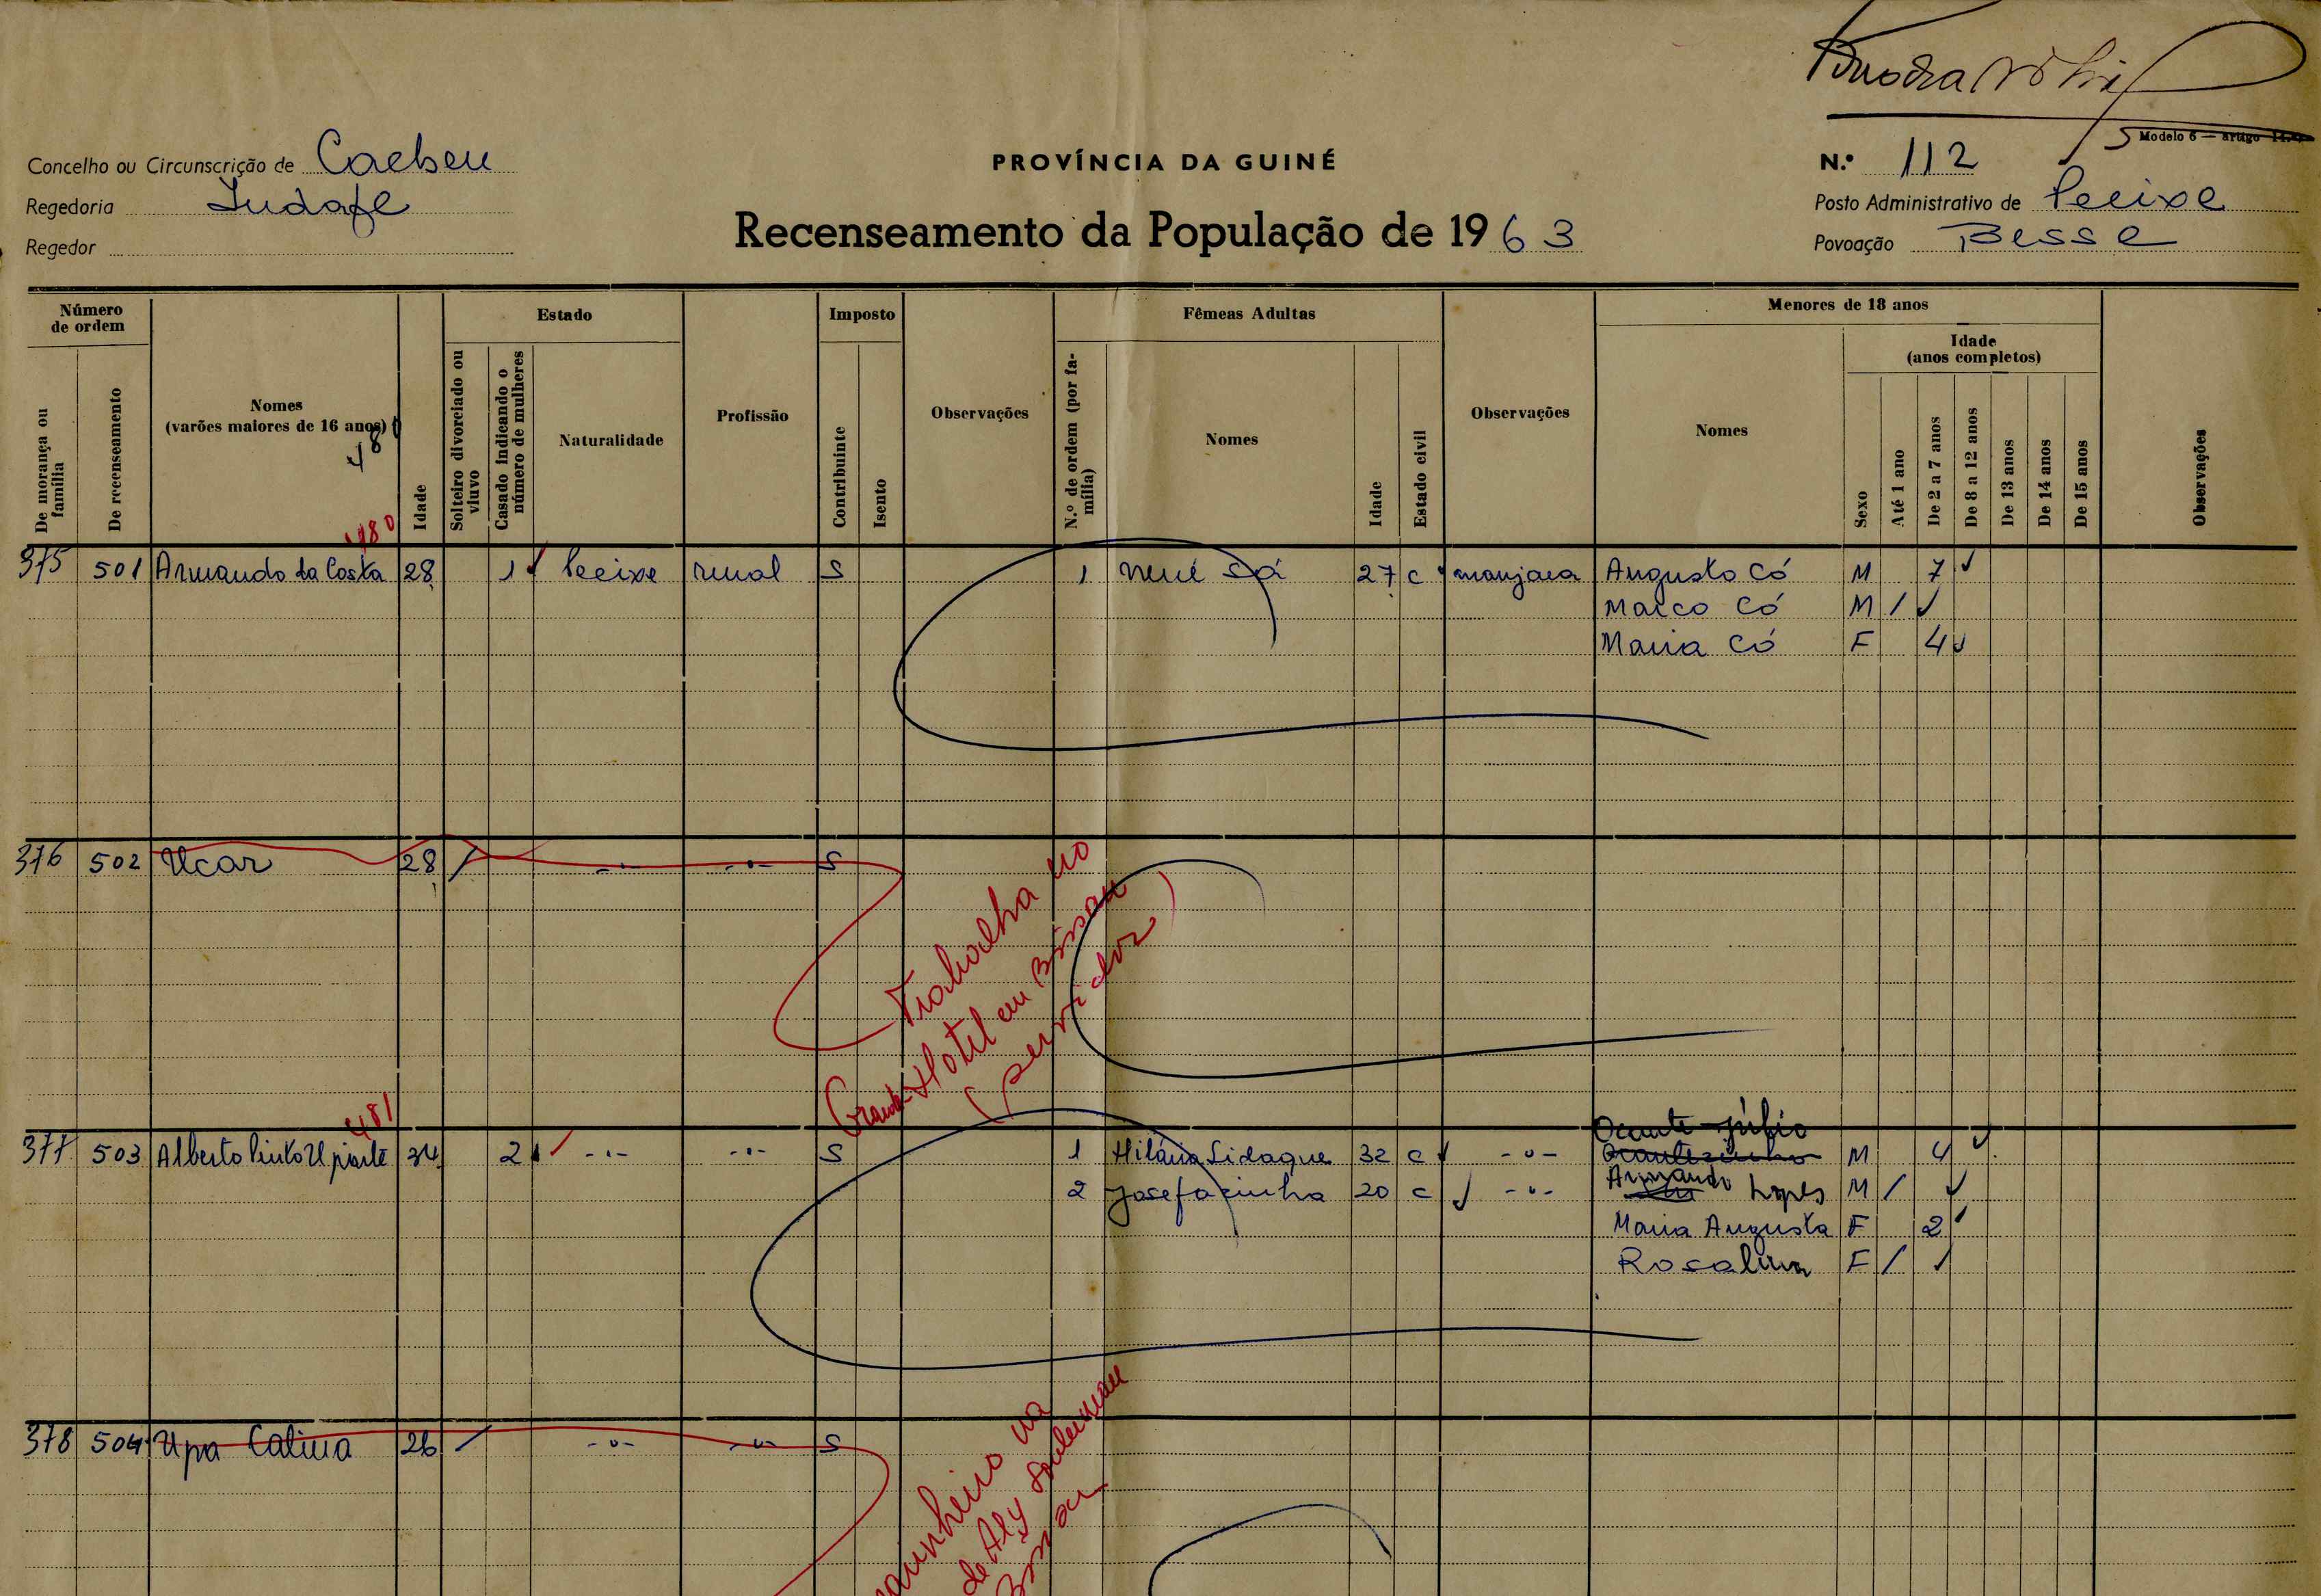 Modelo 6 — artigo 14.º
Concelho ou Circunscrição de Cacheu
PROVÍNCIA DA GUINÉ
N.º 112
Regedoria
Posto Administrativo de Pecixe
Regedor
Recenseamento da População de 1963
Povoação Besse
Número de ordem
Estado
Imposto
Fêmeas Adultas
Menores de 18 anos
Idade
(anos completos)
De morança ou família
De recenseamento
Nomes
(varões maiores de 16 anos)
48
Idade
Solteiro divorciado ou viuvo
Casado indicando o número de mulheres
Naturalidade
Profissão
Contribuinte
Isento
Observações
N.º de ordem (por família)
Nomes
Idade
Estado civil
Observações
Nomes
Sexo
Até 1 ano
De 2 a 7 anos
De 8 a 12 anos
De 13 anos
De 14 anos
De 15 anos
Observações
480
375 501 Armando da Costa 28 1 Pecixe rural S 1 Nené Sá 27 c manjaca Augusto Có M 7
Marco Có M /
Maria Có F 4
376 502 Ucar 28 / -"- -"- S
Trabalha no
Grande Hotel em Bissau
(servidor)
481
Ocante Júlio
377 503 Alberto Pinto Uparte 34 2 -"- -"- S 1 Hilária Sidaque 32 c -"- Ocantezinho M 4
2 Josefazinha 20 c -"- Armando Lopes M /
Maria Augusta F 2
Rosalina F /
378 504 Upa Catina 26 / -"- -"- S
na
de Aly Souleiman
Bissau